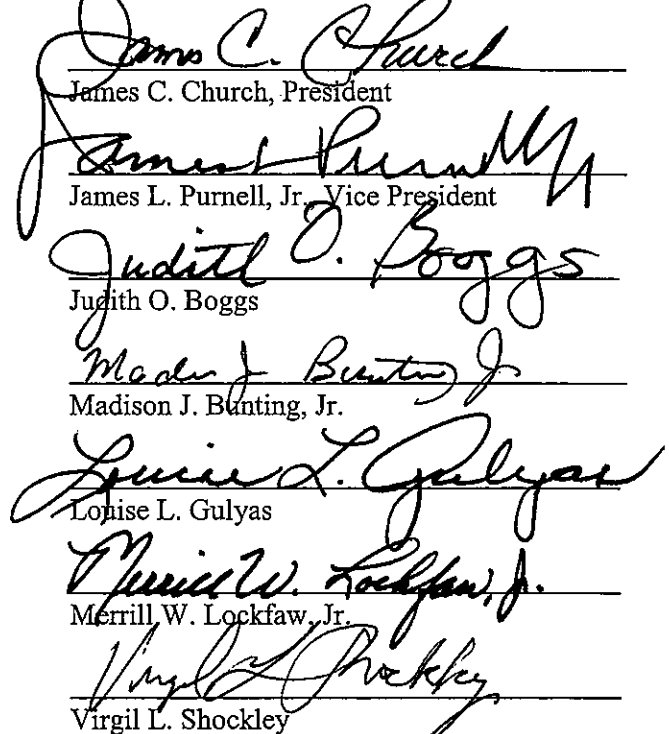 James C. Church
James C. Church, President
James L. Purnell, Jr.
James L. Purnell, Jr., Vice President
Judith O. Boggs
Judith O. Boggs
Madison J. Bunting, Jr.
Madison J. Bunting, Jr.
Louise L. Gulyas
Louise L. Gulyas
Merrill W. Lockfaw, Jr.
Merrill W. Lockfaw, Jr.
Virgil L. Shockley
Virgil L. Shockley